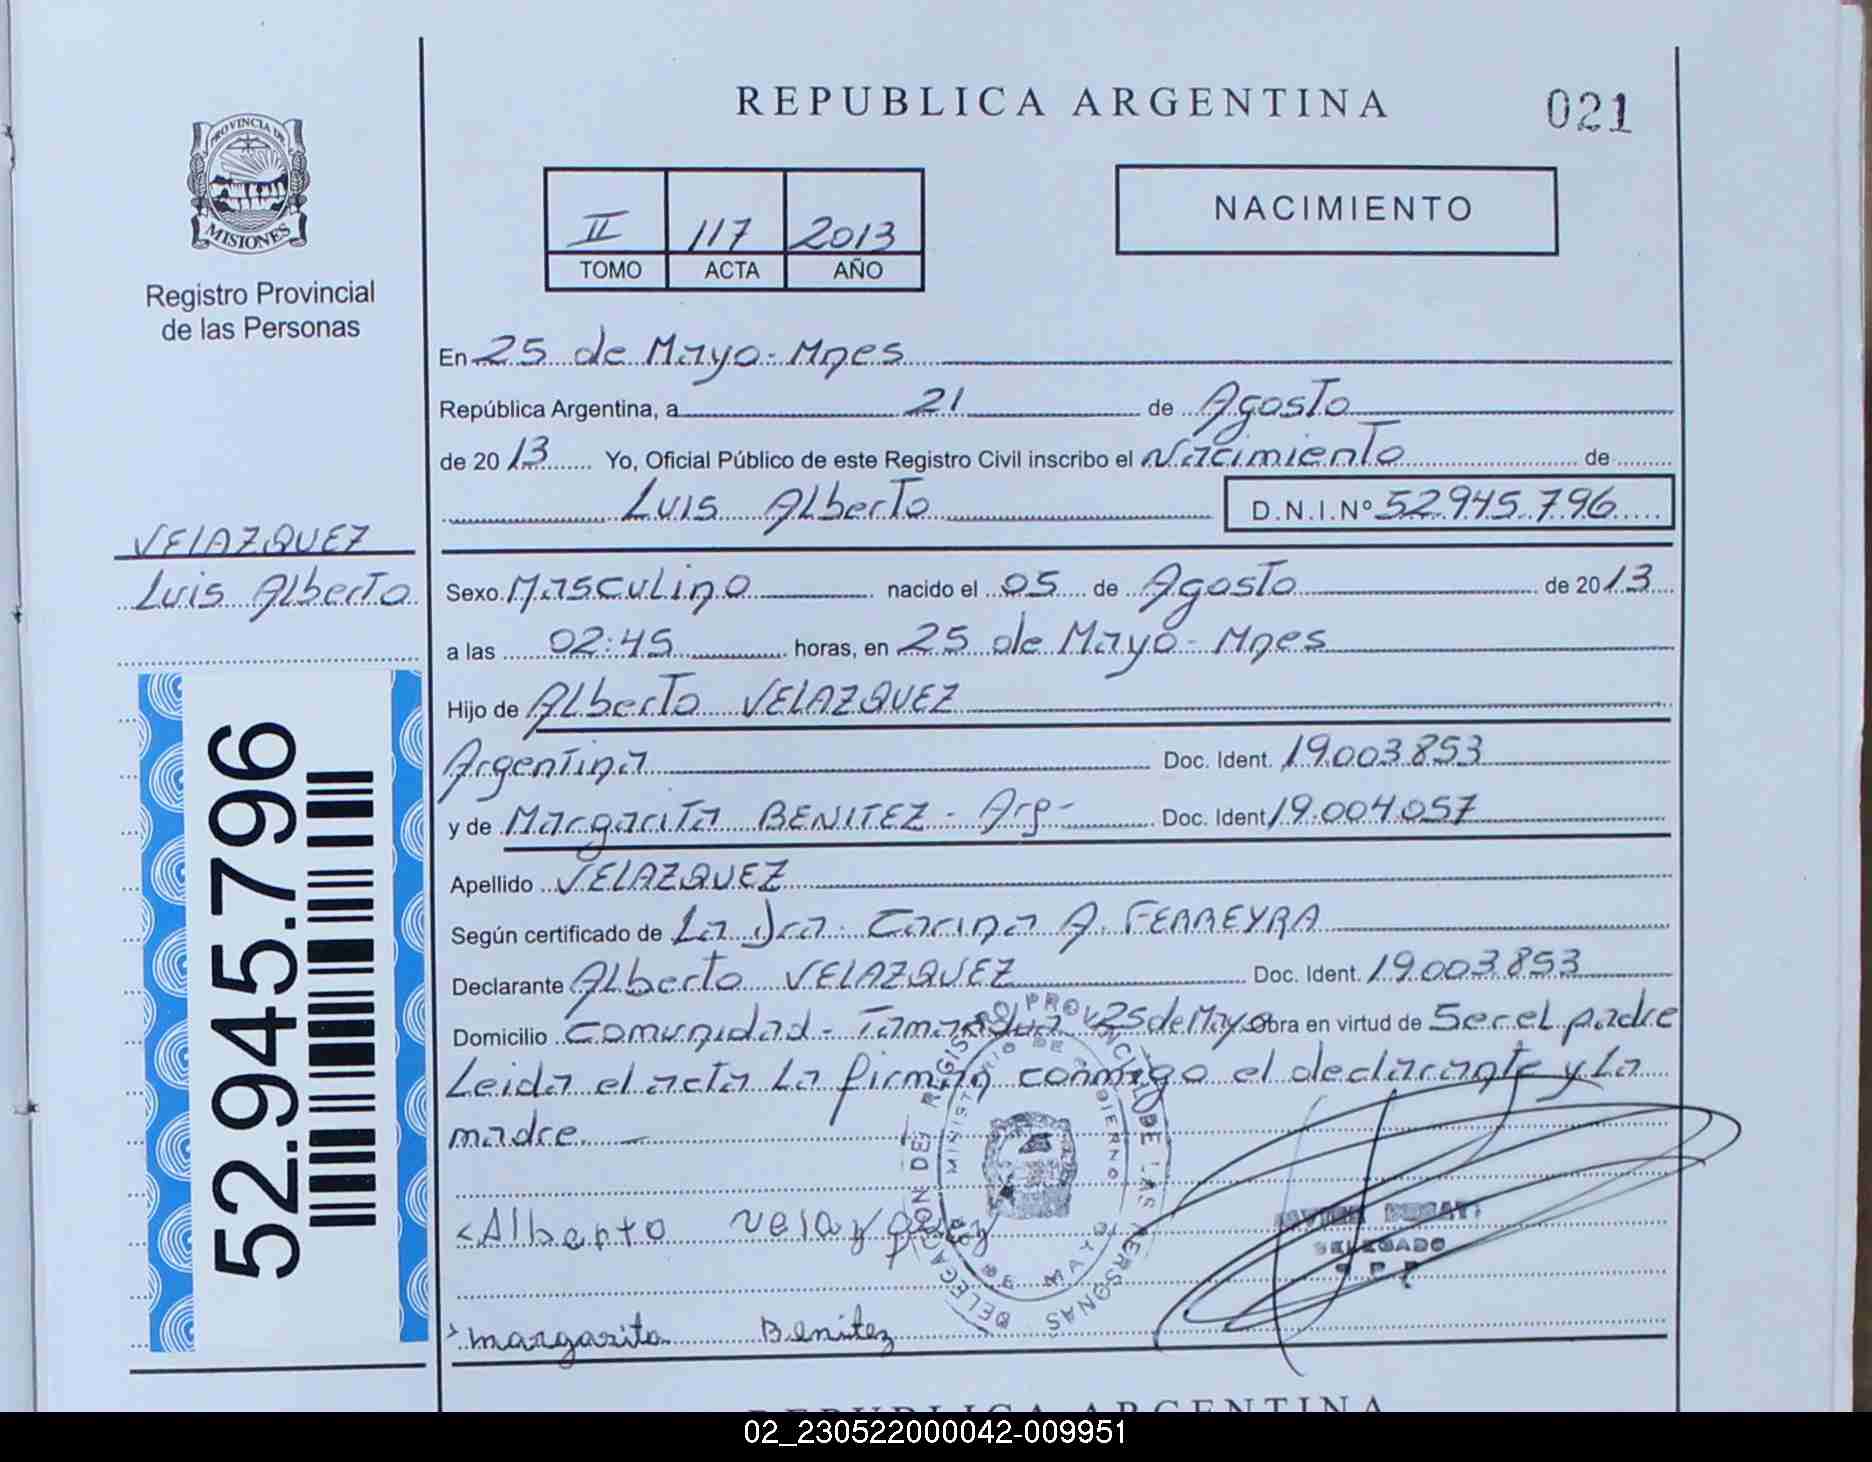 REPUBLICA ARGENTINA
021
PROVINCIA DE
MISIONES
Registro Provincial
de las Personas
II 117 2013
TOMO ACTA AÑO
NACIMIENTO
En 25 de Mayo - Mnes
República Argentina, a 21 de Agosto
de 20 13 Yo, Oficial Público de este Registro Civil inscribo el Nacimiento de
Luis Alberto D.N.I.Nº 52.945.796
VELAZQUEZ
Luis Alberto
Sexo Masculino nacido el 05 de Agosto de 20 13
a las 02:45 horas, en 25 de Mayo - Mnes
Hijo de Alberto VELAZQUEZ
Argentina Doc. Ident. 19.003.853
y de Margarita BENITEZ - Arg - Doc. Ident 19.004.057
Apellido VELAZQUEZ
Según certificado de La Dra. Carina A. FERREYRA
Declarante Alberto VELAZQUEZ Doc. Ident. 19.003.853
Domicilio Comunidad - Tamandua 25 de Mayo Obra en virtud de Ser el padre
Leida el acta La firman conmigo el declarante y La
madre. -
52.945.796
DELEGACION DEL REGISTRO PROVINCIAL DE LAS PERSONAS
MINISTERIO DE GOBIERNO
DE MAYO
Alberto velazquez
DELEGADO
margarita Benitez
REPUBLICA ARGENTINA
02_230522000042-009951